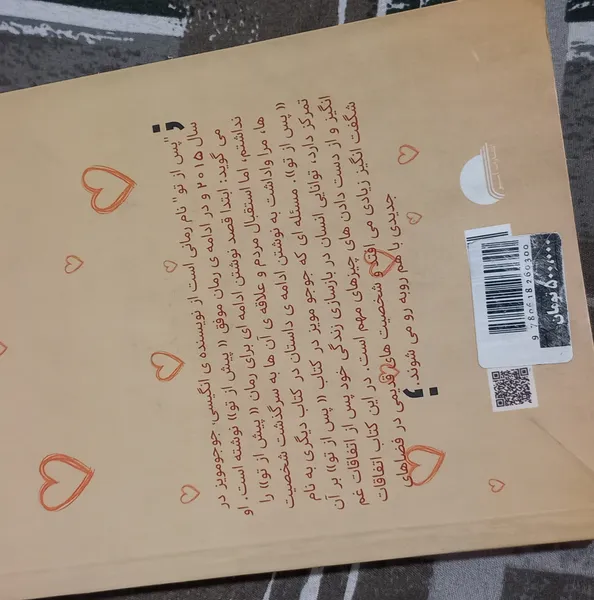 "پس از تو" نام رمانی است از نویسنده ی انگلیسی، جوجومویز در
سال ۲۰۱۵ و در ادامه ی رمان موفق «پیش از تو» نوشته است. او
می گوید: ابتدا قصد نوشتن ادامه ای برای رمان «پیش از تو» را
نداشتم، اما استقبال مردم و علاقه ی آن ها به سرگذشت شخصیت
ها، مرا واداشت به نوشتن ادامه ی داستان در کتاب دیگری به نام
«پس از تو». مسئله ای که جوجو مویز در کتاب «پس از تو» بر آن
تمرکز دارد، توانایی انسان در بازسازی زندگی خود پس از اتفاقات غم
انگیز و از دست دادن های چیزهای مهم است. در این کتاب اتفاقات
شگفت انگیز زیادی می افتد و شخصیت های قدیمی در فضاهای
جدیدی با هم روبه رو می شوند.
9 780618 260300
۵۰۰,۰۰۰ تومان